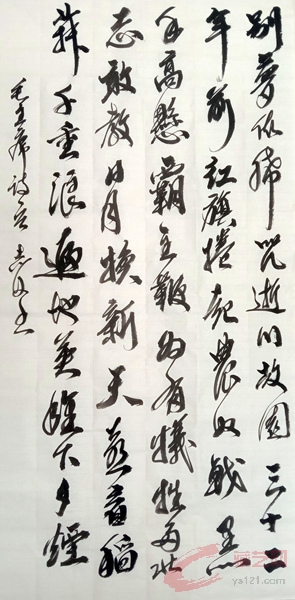 别夢依稀咒逝川故園三十二
年前紅旗捲起農奴戟黑
手高懸霸主鞭为有犧牲多壯
志敢教日月换新天喜看稻
菽千重浪遍地英雄下夕煙
毛主席詩
ya121.com